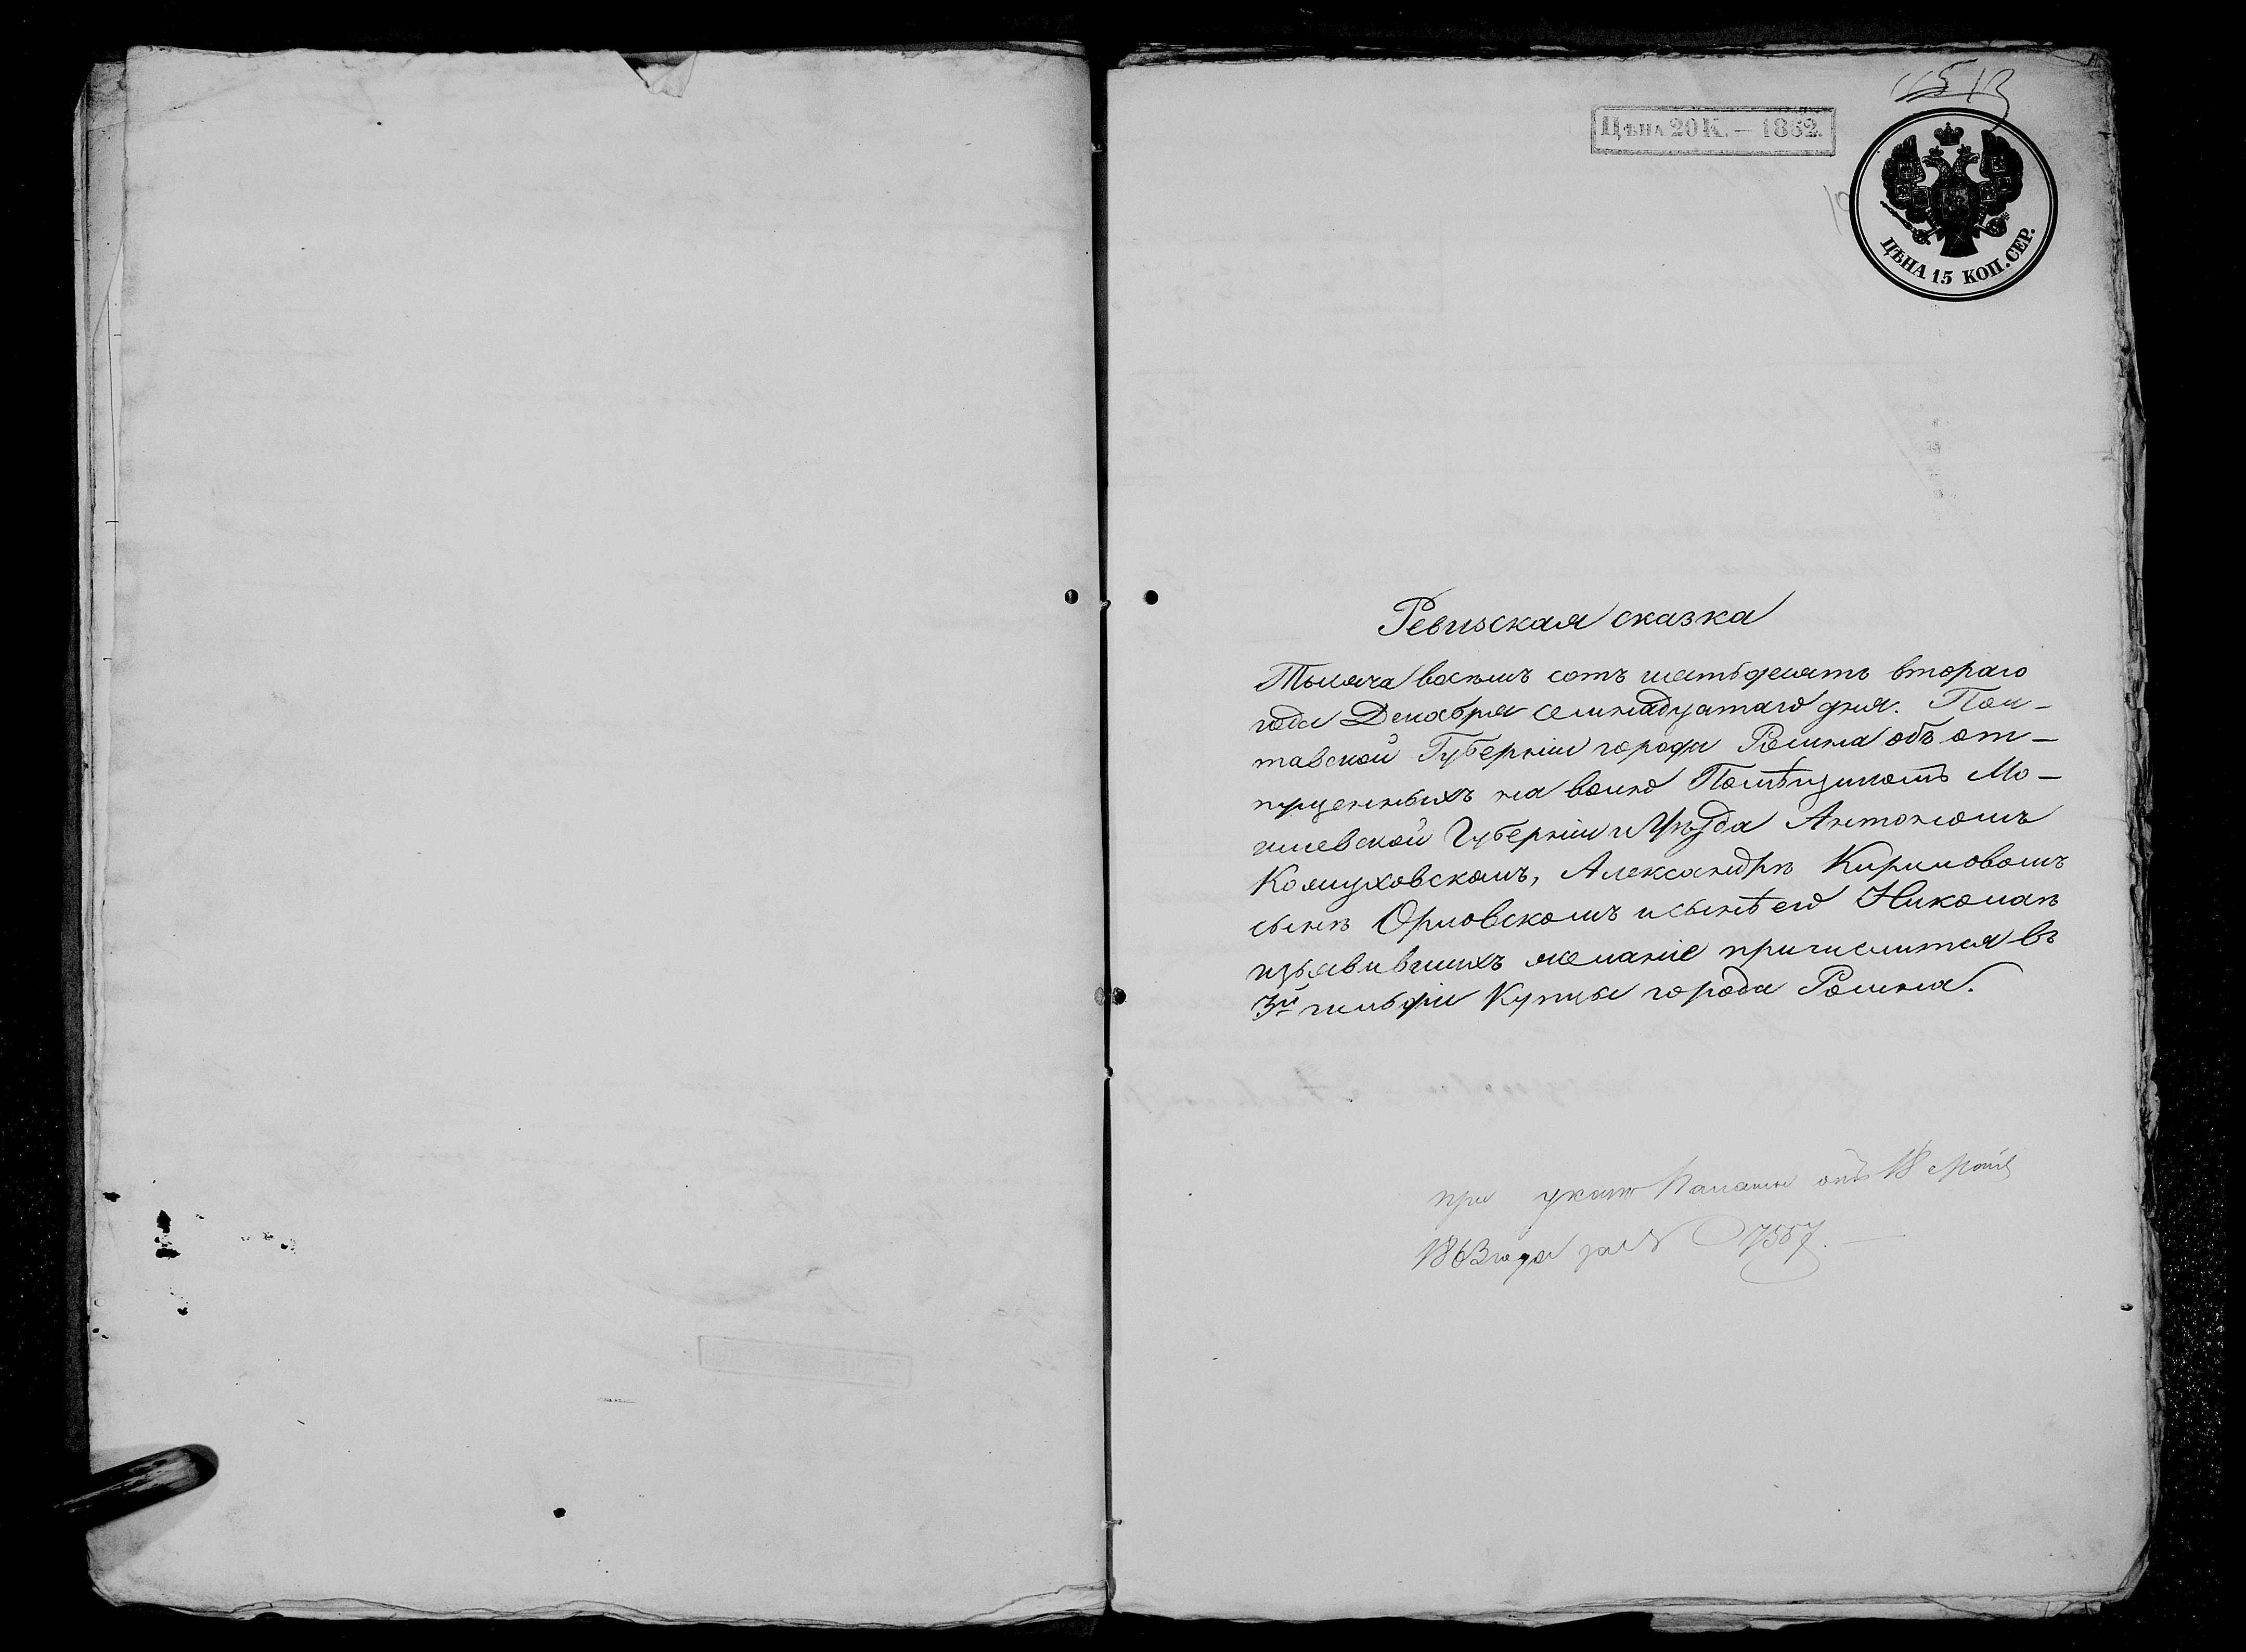 13
Цѣна 20 К. — 1862.
ЦѢНА 15 КОП. СЕР.
Ревизская сказка
Тысяча восемъ сотъ шестьдесятъ втораго
года Декабря семнадцатаго дня. Пол-
тавской Губерніи города Ромна объ от-
пущенныхъ на волю Помѣщикомъ Мо-
гилевской Губерніи и Уѣзда Антономъ
Комуховскомъ, Александрѣ Кириловомъ
сынѣ Орловскомъ и сынѣ его Николаѣ
изъявившихъ желаніе причислится въ
3й гильдіи Купцы города Ромна.
при указе Палаты отъ 18 Мая
1863 года за № 7557.